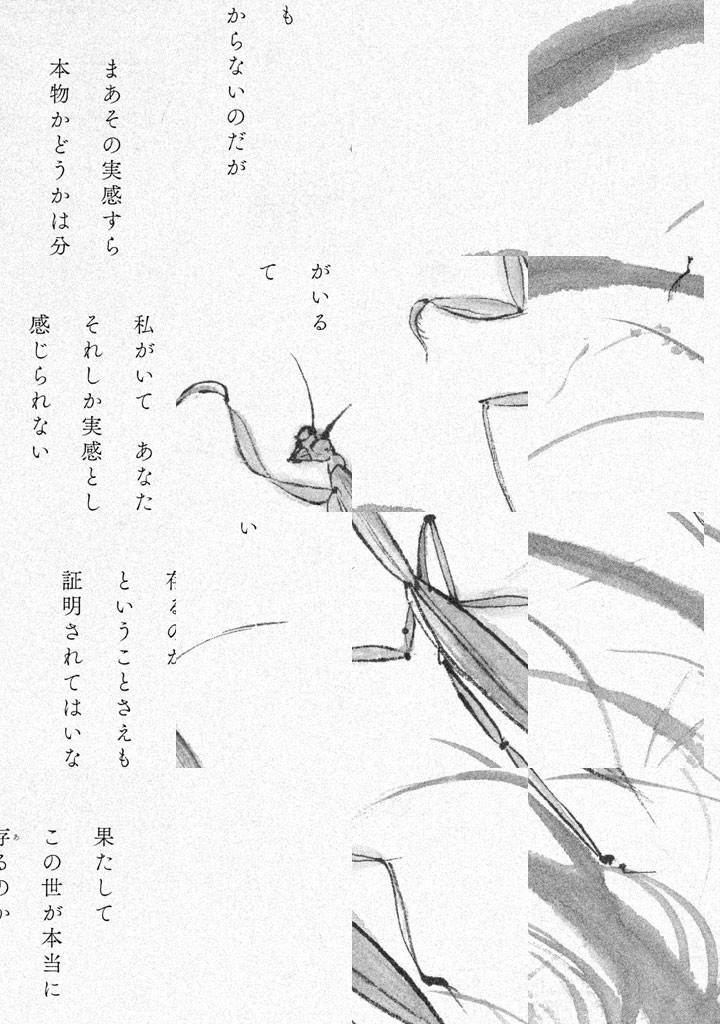 も
からないのだが
まあその実感すら
本物かどうかは分
がいる
て
私がいて　あなた
それしか実感とし
感じられない
い
存るのか
ということさえも
証明されてはいな
果たして
この世が本当に